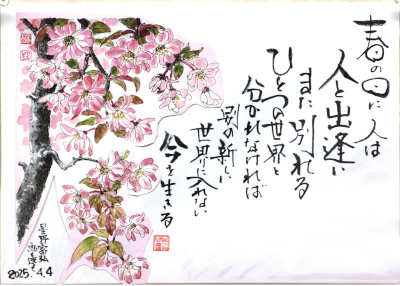 春の日に人は
人と出逢い
また別れる
ひとつの世界と
分かれなければ
別の新しい
世界に入れない
今を生きる
星野富弘
2025.4.4